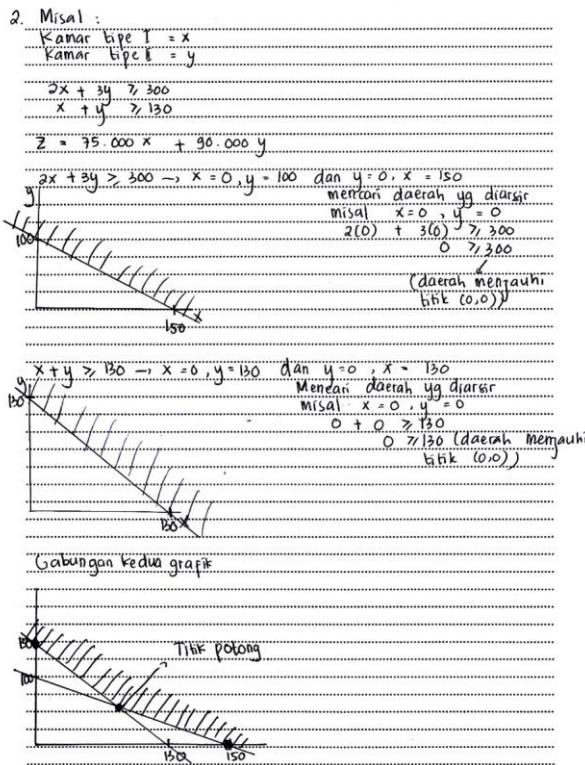 2. Misal :
Kamar tipe I = x
Kamar tipe II = y
2x + 3y ≥ 300
x + y ≥ 130
Z = 75.000 x + 90.000 y
2x + 3y ≥ 300 → x = 0, y = 100 dan y = 0, x = 150
mencari daerah yg diarsir
misal x = 0, y = 0
2(0) + 3(0) ≥ 300
0 ≥ 300
(daerah menjauhi
titik (0,0))
y
100
150
x
x + y ≥ 130 → x = 0, y = 130 dan y = 0, x = 130
Mencari daerah yg diarsir
misal x = 0, y = 0
0 + 0 ≥ 130
0 ≥ 130 (daerah menjauhi
titik (0,0))
y
130
130
x
Gabungan kedua grafik
130
100
Titik potong
130
150